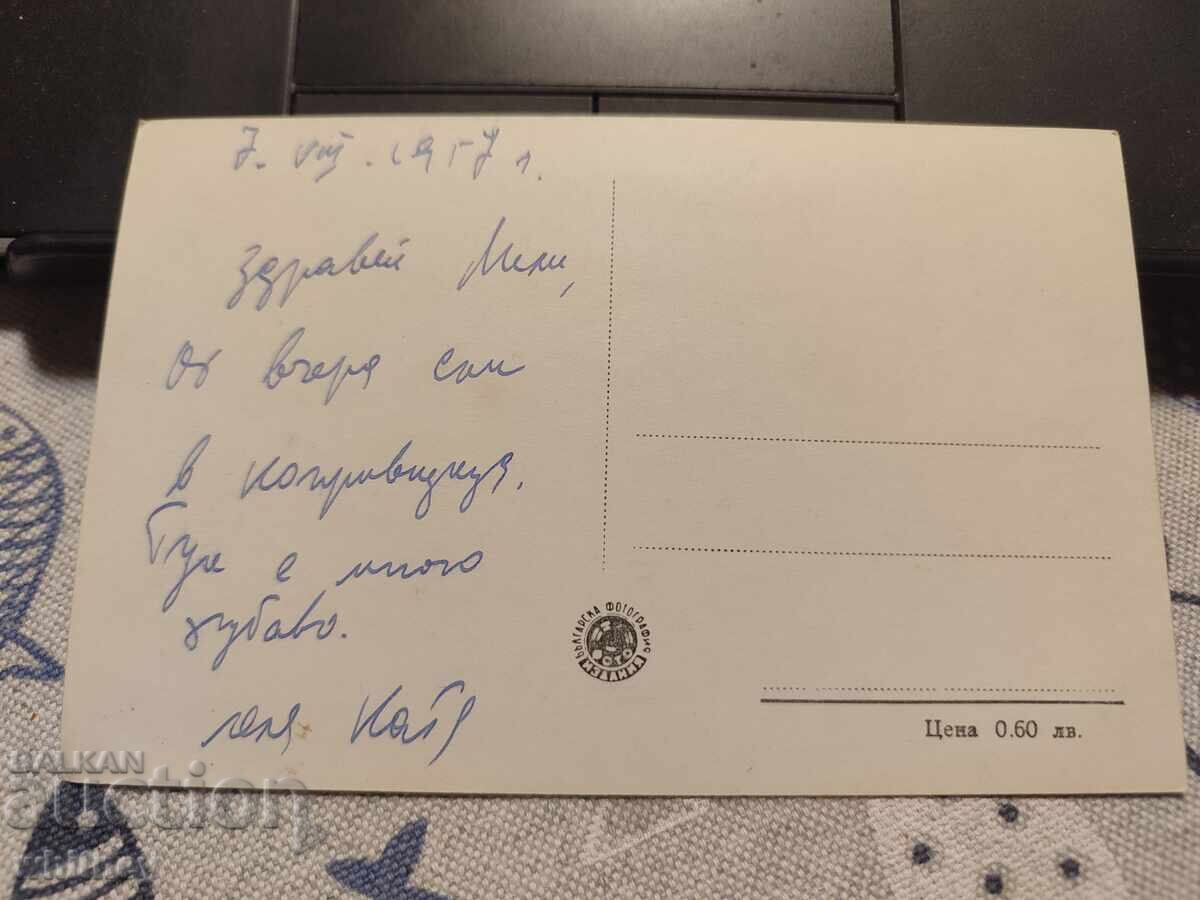 7. VIII. 1957 г.
Здравей Мими,
От вчера съм
в Копривщица.
Тук е много
хубаво.
леля Катя
БЪЛГАРСКА ФОТОГРАФИЯ
ФОТО
ИЗДАНИЯ
Цена 0.60 лв.
BALKAN
auction